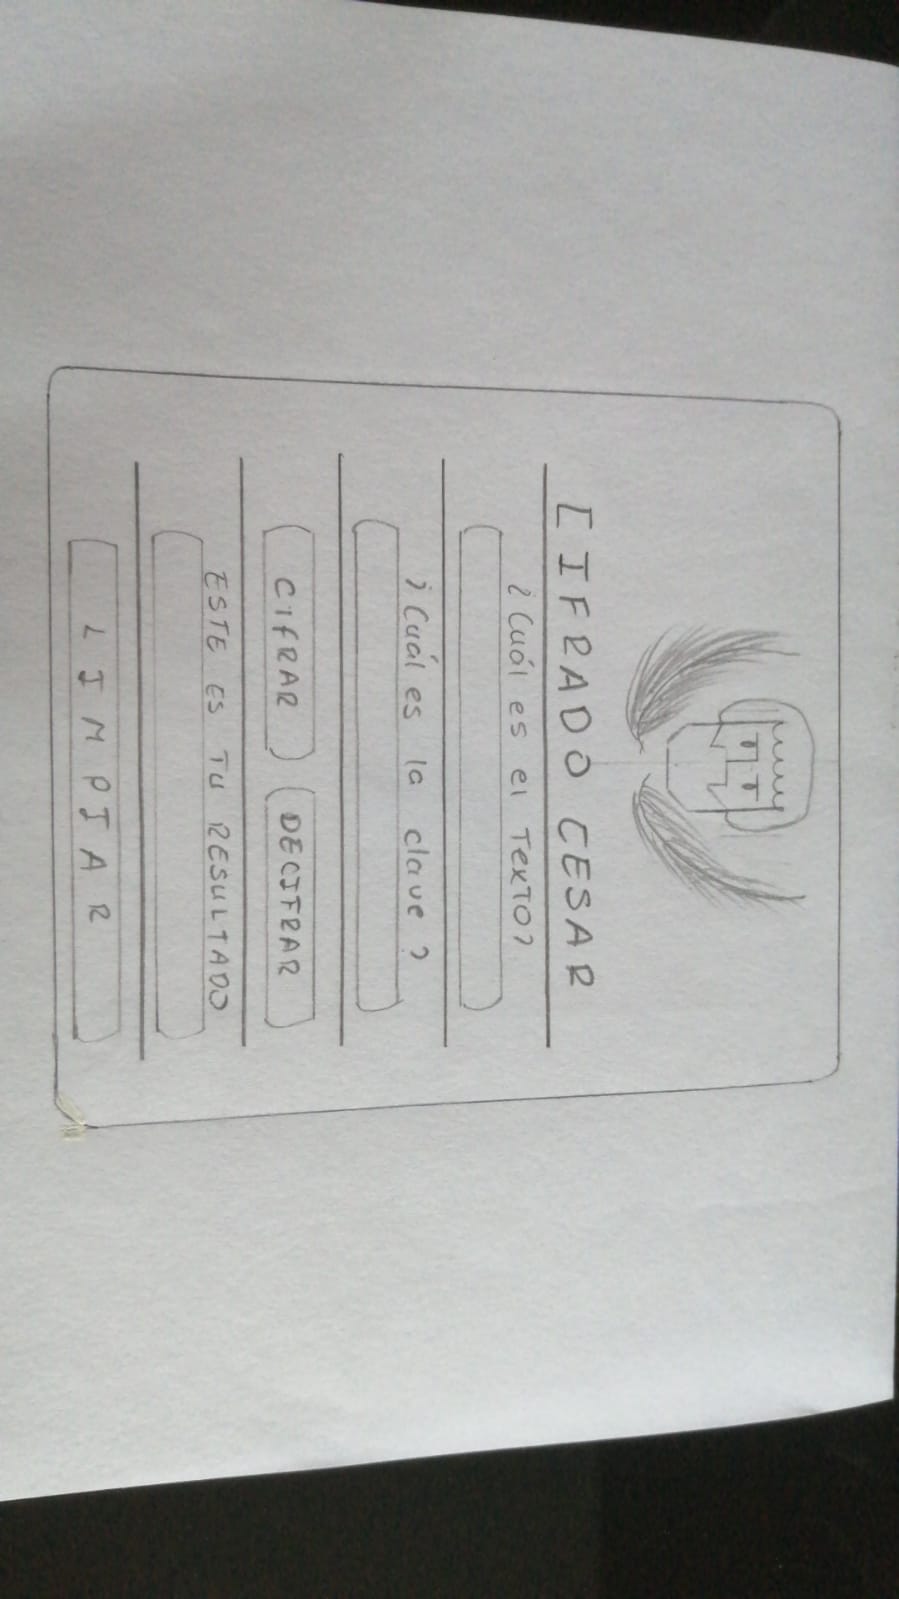 CIFRADO CESAR
¿Cuál es el Texto?
¿Cuál es la clave?
CIFRAR DECIFRAR
ESTE ES TU RESULTADO
LIMPIAR